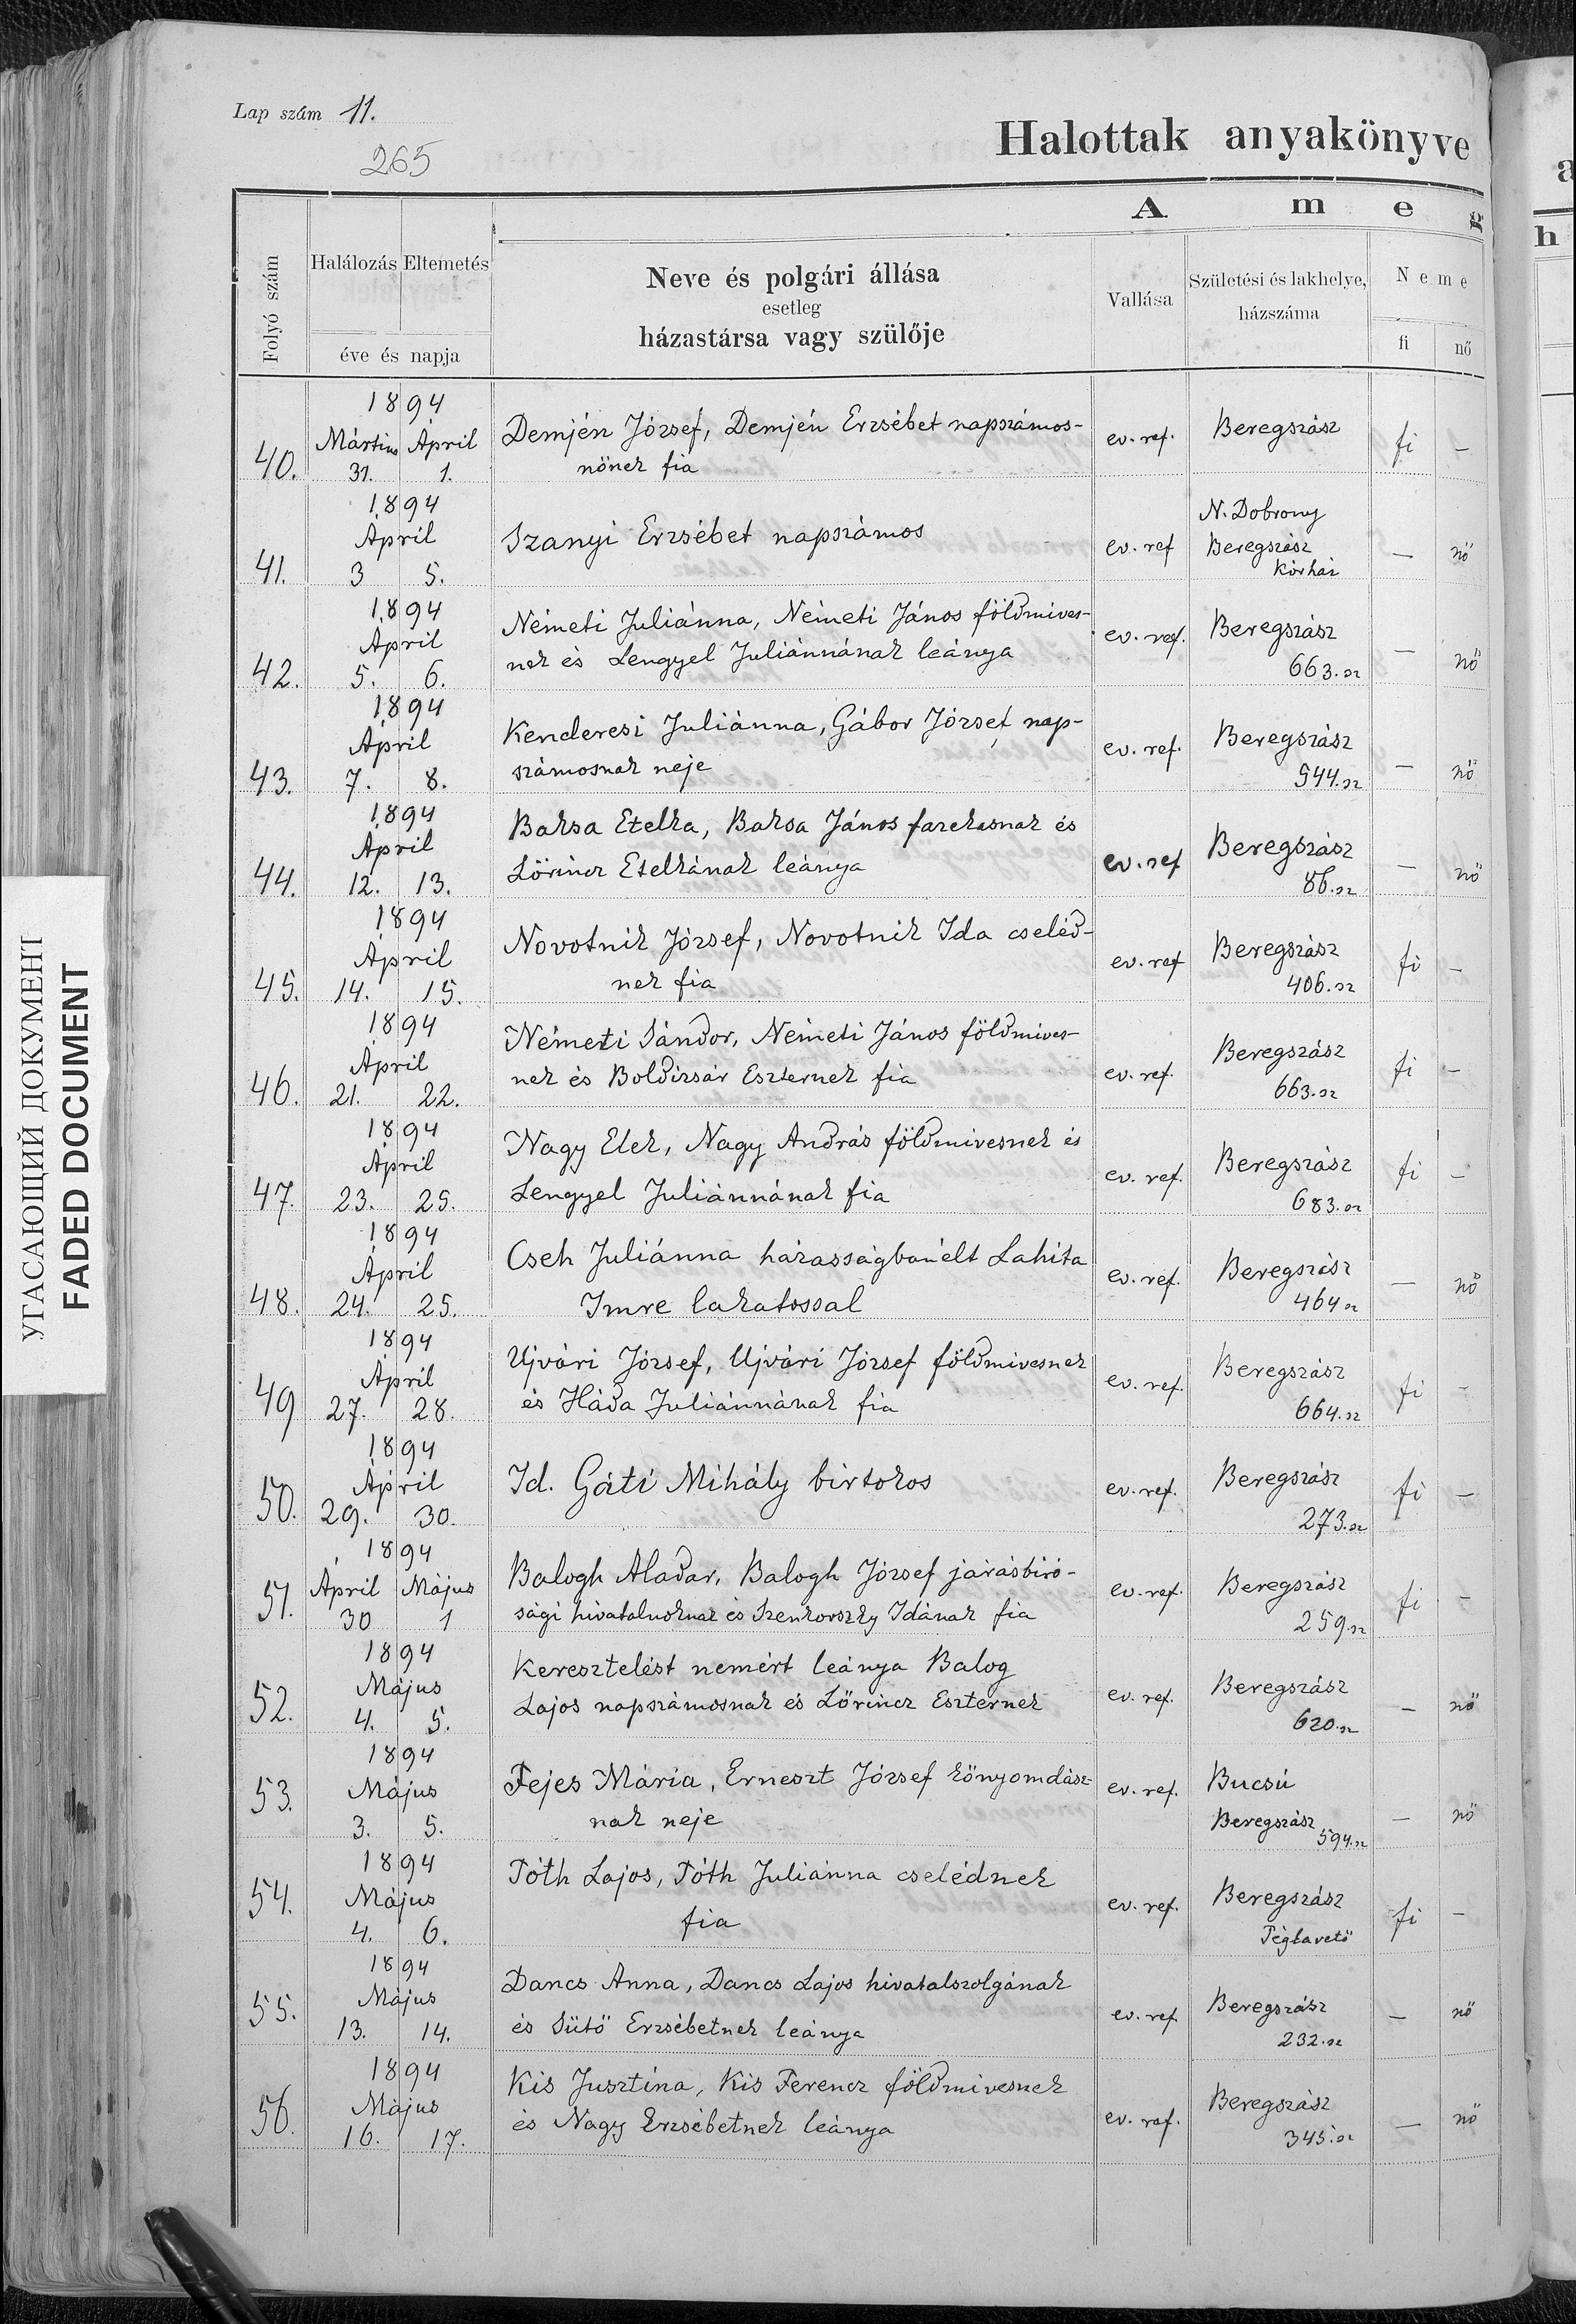 Lap szám 11.
265
Halottak anyakönyve
A m e g
Folyó szám
Halálozás Eltemetés
éve és napja
Neve és polgári állása
esetleg
házastársa vagy szülője
Vallása
Születési és lakhelye,
házszáma
Neme
fi nő
1894
Mártius Ápril
40. 31. 1.
Demjén József, Demjén Erzsébet napszámos-
nőnek fia
ev. ref.
Beregszász
fi -
1894
Ápril
41. 3 5.
Szanyi Erzsébet napszámos
ev. ref
N. Dobrony
Beregszász
Kórház
- nő
1894
Ápril
42. 5. 6.
Németi Juliánna, Németi János földmives-
nek és Lengyel Juliánnának leánya
ev. ref.
Beregszász
663. sz
- nő
1894
Ápril
43. 7. 8.
Kenderesi Juliánna, Gábor József nap-
számosnak neje
ev. ref.
Beregszász
544. sz
- nő
1894
Ápril
44. 12. 13.
Baksa Etelka, Baksa János fazekasnak és
Lörincz Etelkának leánya
ev. ref
Beregszász
86. sz
- nő
1894
Ápril
45. 14. 15.
Novotnik József, Novotnik Ida cseléd-
nek fia
ev. ref
Beregszász
406. sz
fi -
1894
Ápril
46. 21. 22.
Németi Sándor, Németi János földmives-
nek és Boldizsár Eszternek fia
ev. ref.
Beregszász
663. sz
fi -
1894
Ápril
47. 23. 25.
Nagy Elek, Nagy András földmivesnek és
Lengyel Juliánnának fia
ev. ref.
Beregszász
683. sz
fi -
1894
Ápril
48. 24. 25.
Cseh Juliánna házasságban élt Lahita
Imre lakatossal
ev. ref.
Beregszász
464 sz
- nő
1894
Ápril
49 27. 28.
Ujvári József, Ujvári József földmivesnek
és Háda Juliánnának fia
ev. ref.
Beregszász
664. sz
fi -
1894
Ápril
50. 29. 30.
Id. Gáti Mihály birtokos
ev. ref.
Beregszász
273. sz
fi -
1894
Ápril Május
51. 30 1
Balogh Aladar, Balogh József járásbiró-
sági hivatalnoknak és Szenkovszky Idának fia
ev. ref.
Beregszász
259. sz
fi -
1894
Május
52. 4. 5.
Keresztelést nemért leánya Balog
Lajos napszámosnak és Lőrincz Eszternek
ev. ref.
Beregszász
620. sz
- nő
1894
Május
53. 3. 5.
Fejes Mária, Erneszt József könyomdász-
nak neje
ev. ref.
Bucsú
Beregszász
594. sz
- nő
1894
Május
54. 4. 6.
Tóth Lajos, Tóth Juliánna cselédnek
fia
ev. ref.
Beregszász
Téglavető
fi -
1894
Május
55. 13. 14.
Dancs Anna, Dancs Lajos hivatalszolgának
és Sütő Erzsébetnek leánya
ev. ref.
Beregszász
232. sz
- nő
1894
Május
56. 16. 17.
Kis Jusztina, Kis Ferencz földmivesnek
és Nagy Erzsébetnek leánya
ev. ref.
Beregszász
345. sz
- nő
УГАСАЮЩИЙ ДОКУМЕНТ
FADED DOCUMENT
a
h